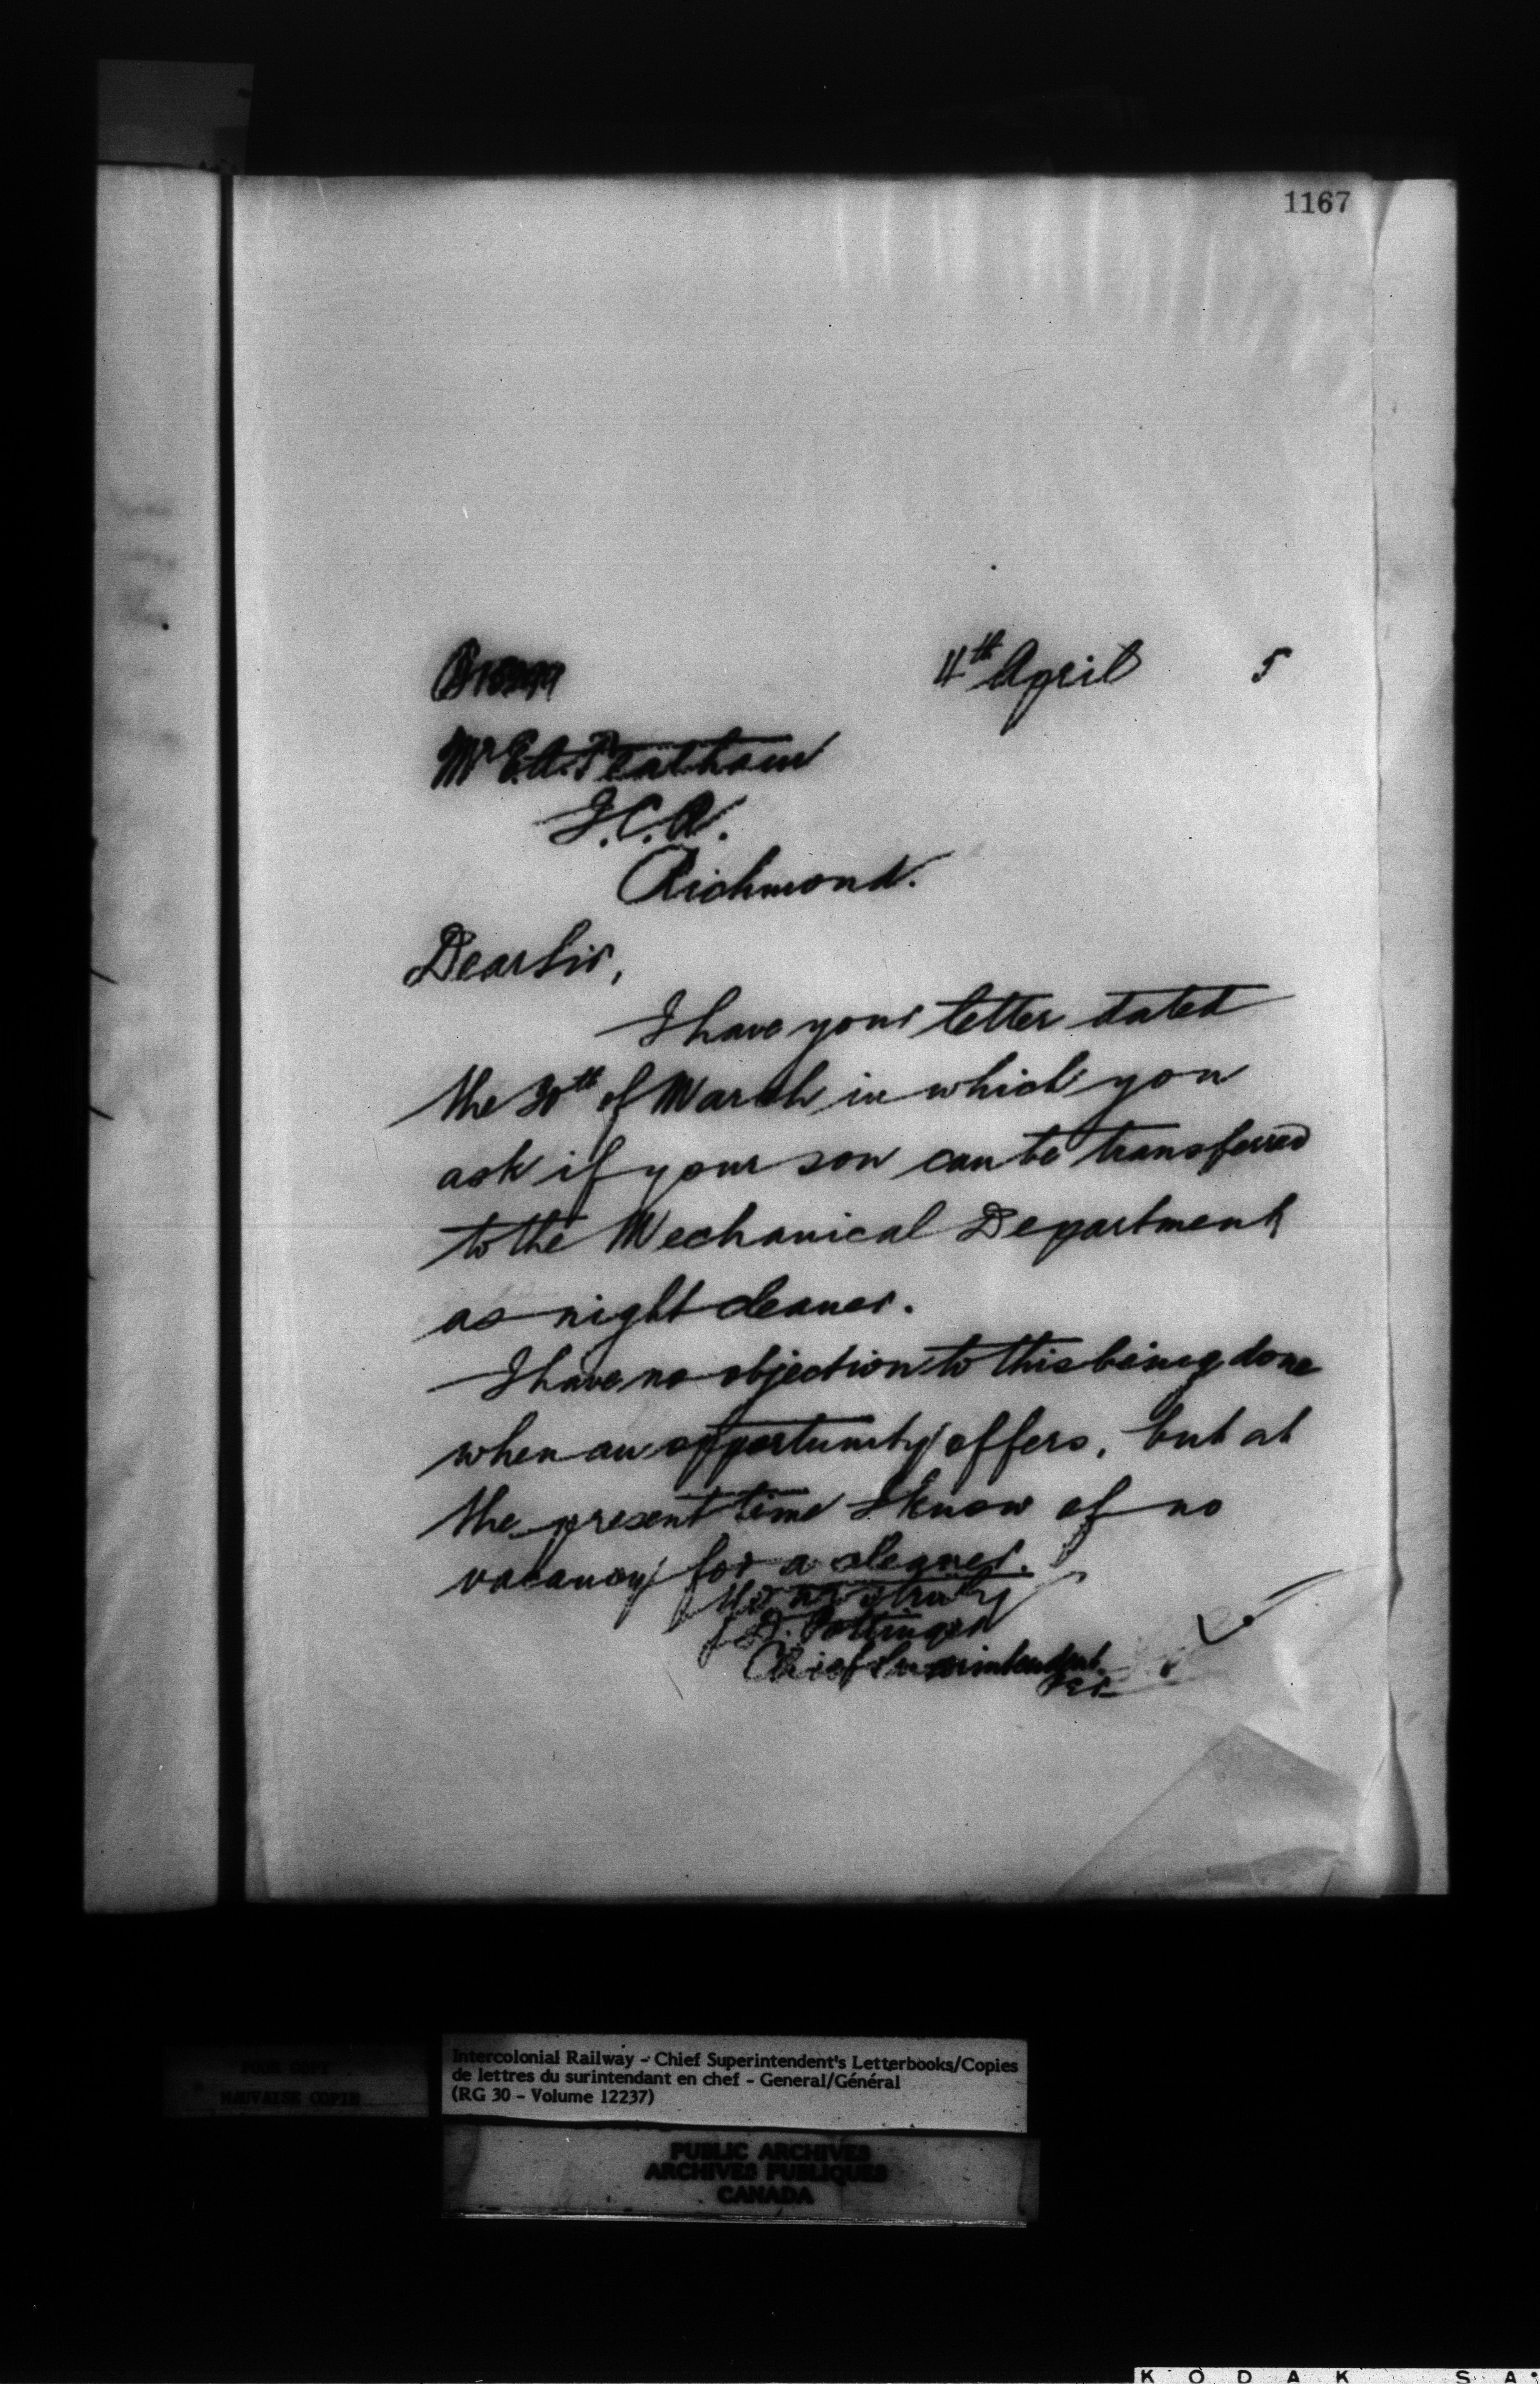 1167
4th April 5
Mr E.A.
I.C.R.
Richmond.
Dear Sir,
I have your letter dated
the 30th of March in which you
ask if your son can be transferred
to the Mechanical Department
as night cleaner.
I have no objection to this being done
when an opportunity offers, but at
the present time I know of no
vacancy for a cleaner.
Yours truly
D. Pottinger
Chief Superintendent
POOR COPY
MAUVAISE COPIE
Intercolonial Railway - Chief Superintendent's Letterbooks/Copies
de lettres du surintendant en chef - General/Général
(RG 30 - Volume 12237)
PUBLIC ARCHIVES
ARCHIVES PUBLIQUES
CANADA
KODAK SA